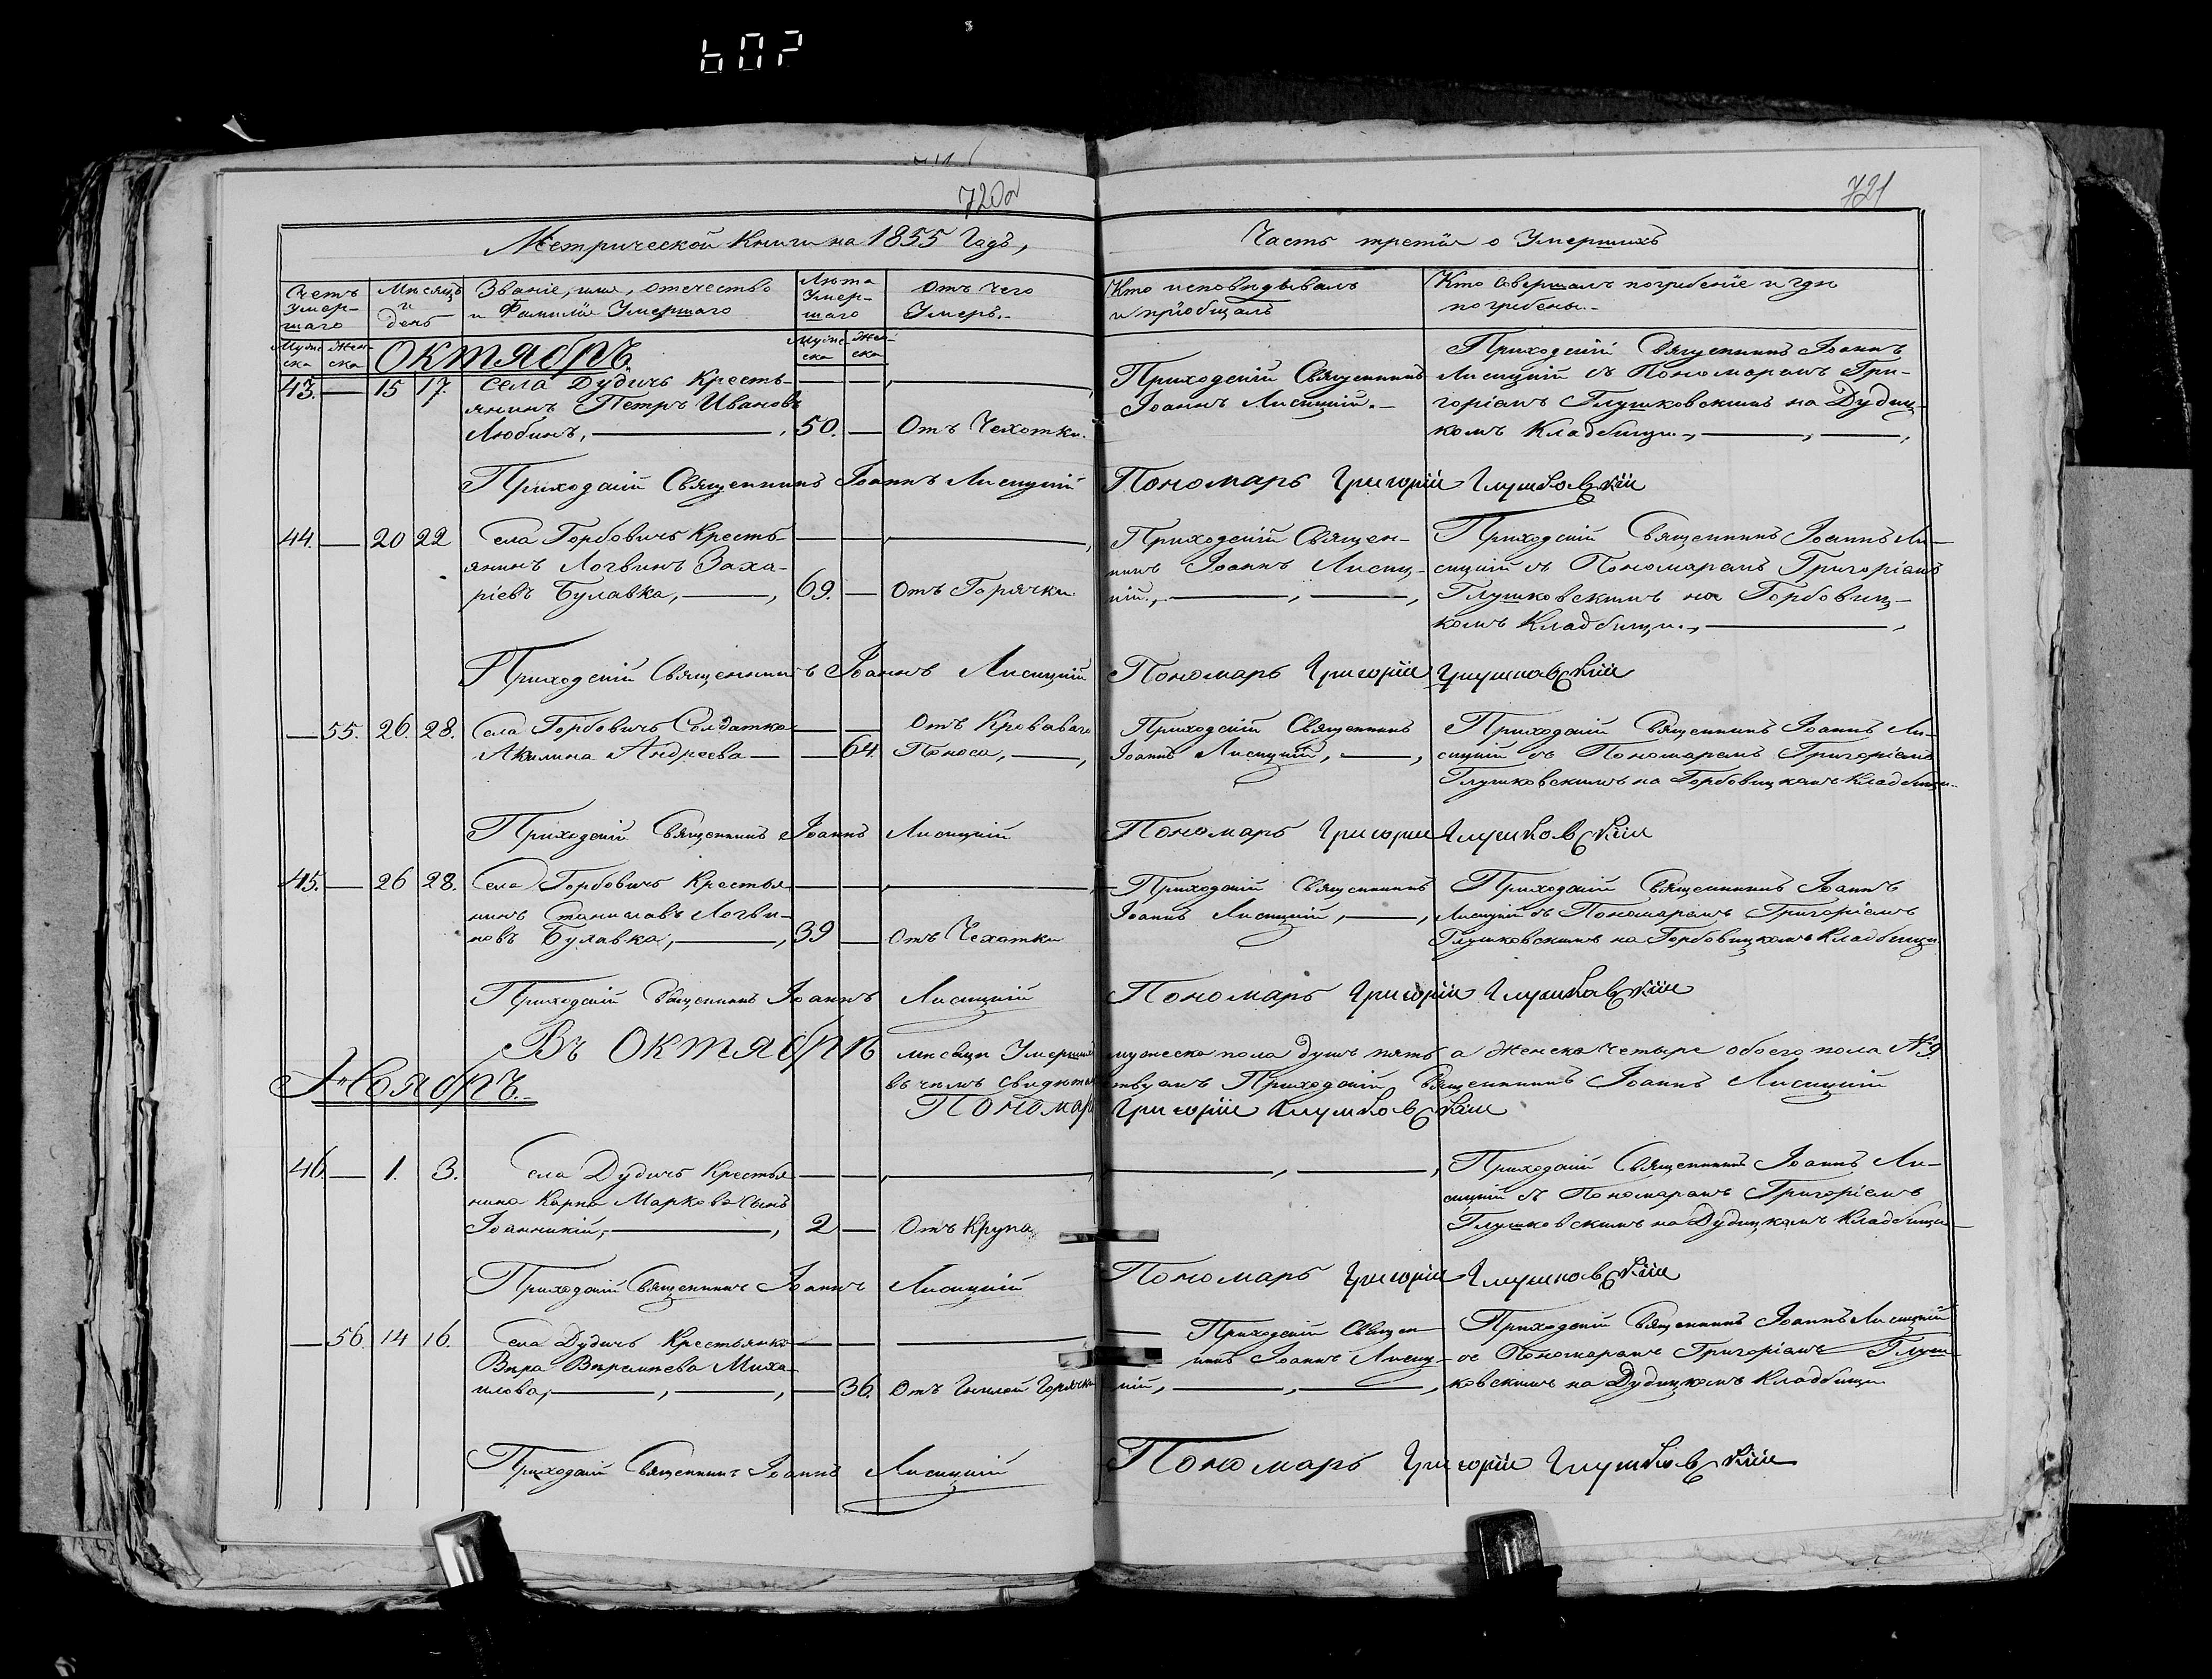 607
720об
721
Метрической Книги на 1855 Годъ,
Часть третiя о Умершихъ
Счетъ Умер-шаго
Мѣсяцъ и день
Званiе, имя, отечество и Фамилiя Умершаго
Лѣта Умер-шаго
Отъ чего Умеръ.
Кто исповѣдывалъ и прiобщалъ
Кто Совершалъ погребенiе и гдѣ погребены.
Муже-ска
Жен-ска
Октябрь.
Муже-ска
Жен-ска
43. — 15 17.
Села Дудичъ Кресть-
янинъ Петръ Ивановъ
Любинъ, — 50. — Отъ Чехотки.
Приходскiй Священникъ
Iоаннъ Лисицкiй. —
Приходскiй Священникъ Iоаннъ
Лисицкiй съ Пономаремъ Гри-
горiемъ Глушковскимъ на Дудиц-
комъ Кладбищи.
Приходскiй Священникъ Iоаннъ Лисицкiй
Пономарь Григорiи Глушковскiи
44. — 20 22
Села Горбовичъ Кресть-
янинъ Логвинъ Заха-
рiевъ Булавка, — 69. — Отъ Горячки
Приходскiй Священ-
никъ Iоаннъ Лисиц-
кiй.,
Приходскiй Священникъ Iоаннъ Ли-
сицкiй съ Пономаремъ Григорiемъ
Глушковскимъ на Горбовиц-
комъ Кладбищи.,
Приходскiй Священникъ Iоаннъ Лисицкiй
Пономарь Григорiи Глушковскiи
— 55. 26. 28.
Села Горбовичъ Солдатка
Акилина Андреева — — 64.
Отъ Кроваваго
Поноса,
Приходскiй Священникъ
Iоаннъ Лисицкiй,
Приходскiй Священникъ Iоаннъ Ли-
сицкiй съ Пономаремъ Григорiемъ
Глушковскимъ на Горбовицкомъ Кладбищи.
Приходскiй Священникъ Iоаннъ Лисицкiй
Пономарь Григории Глушковскiи
45. — 26 28.
Села Горбовичъ Крестья-
нинъ Станиславъ Логви-
новъ Булавка, — 39 — Отъ Чехотки
Приходскiй Священникъ
Iоаннъ Лисицкiй,
Приходскiй Священникъ Iоаннъ
Лисицкiй съ Пономаремъ Григорiемъ
Глушковскимъ на Горбовицкомъ Кладбищи
Приходскiй Священникъ Iоаннъ Лисицкiй
Пономарь Григорiи Глушковскiи
Въ Октябрѣ мѣсяцѣ Умершихъ мужеска пола душъ пять а Женска четыре обоего пола №9.
въ чемъ свидѣтельствуемъ Приходскiй Священникъ Iоаннъ Лисицкiй
Пономарь Григорiи Глушковскiи
Ноябрь.
46. — 1. 3.
Села Дудичъ Крестья-
нина Карпа Маркова Сынъ
Iоанникiй, — 2 — Отъ Крупа
Приходскiй Священникъ Iоаннъ Ли-
сицкiй съ Пономаремъ Григорiемъ
Глушковскимъ на Дудицкомъ Кладбищи
Приходскiй Священникъ Iоаннъ Лисицкiй
Пономарь Григорiи Глушковскiи
— 56. 14 16.
Села Дудичъ Крестьянка
Вѣра Миха-
илова, — 36. Отъ Гнилой Горячки
Приходскiй Священ-
никъ Iоаннъ Лисиц-
кiй,
Приходскiй Священникъ Iоаннъ Лисицкiй
съ Пономаремъ Григорiемъ Глуш-
ковскимъ на Дудицкомъ Кладбищи
Приходскiй Священникъ Iоаннъ Лисицкiй
Пономарь Григорiи Глушковскiи